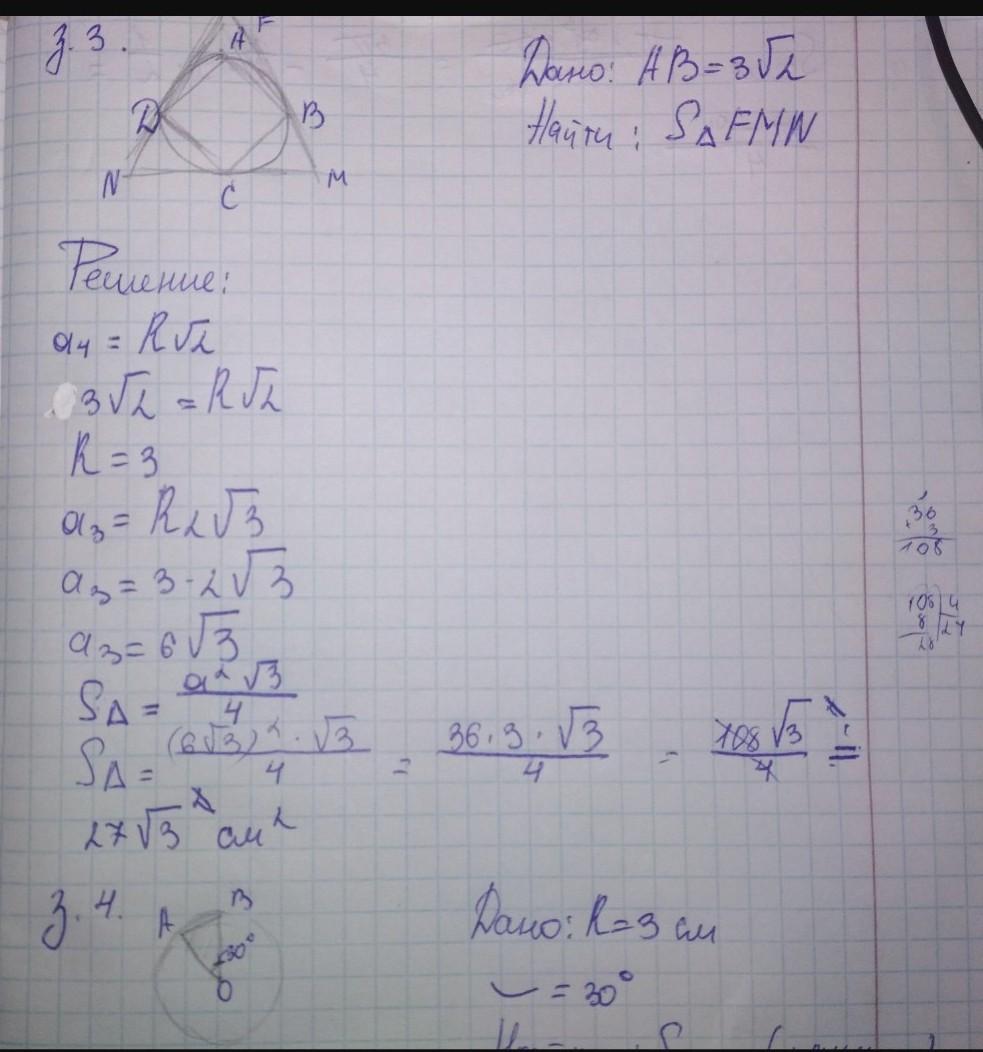 з. 3.
A F
D B
N C M
Дано: AB = 3√2
Найти: S△FMN
Решение:
a₄ = R√2
3√2 = R√2
R = 3
a₃ = R2√3
a₃ = 3·2√3
a₃ = 6√3
S△ = a²√3 / 4
S△ = (6√3)²·√3 / 4 = 36·3·√3 / 4 = 108√3 / 4 =
27√3 см²
36
3
108
108 4
8 27
28
з. 4.
A B
30°
O
Дано: R = 3 см
◡ = 30°